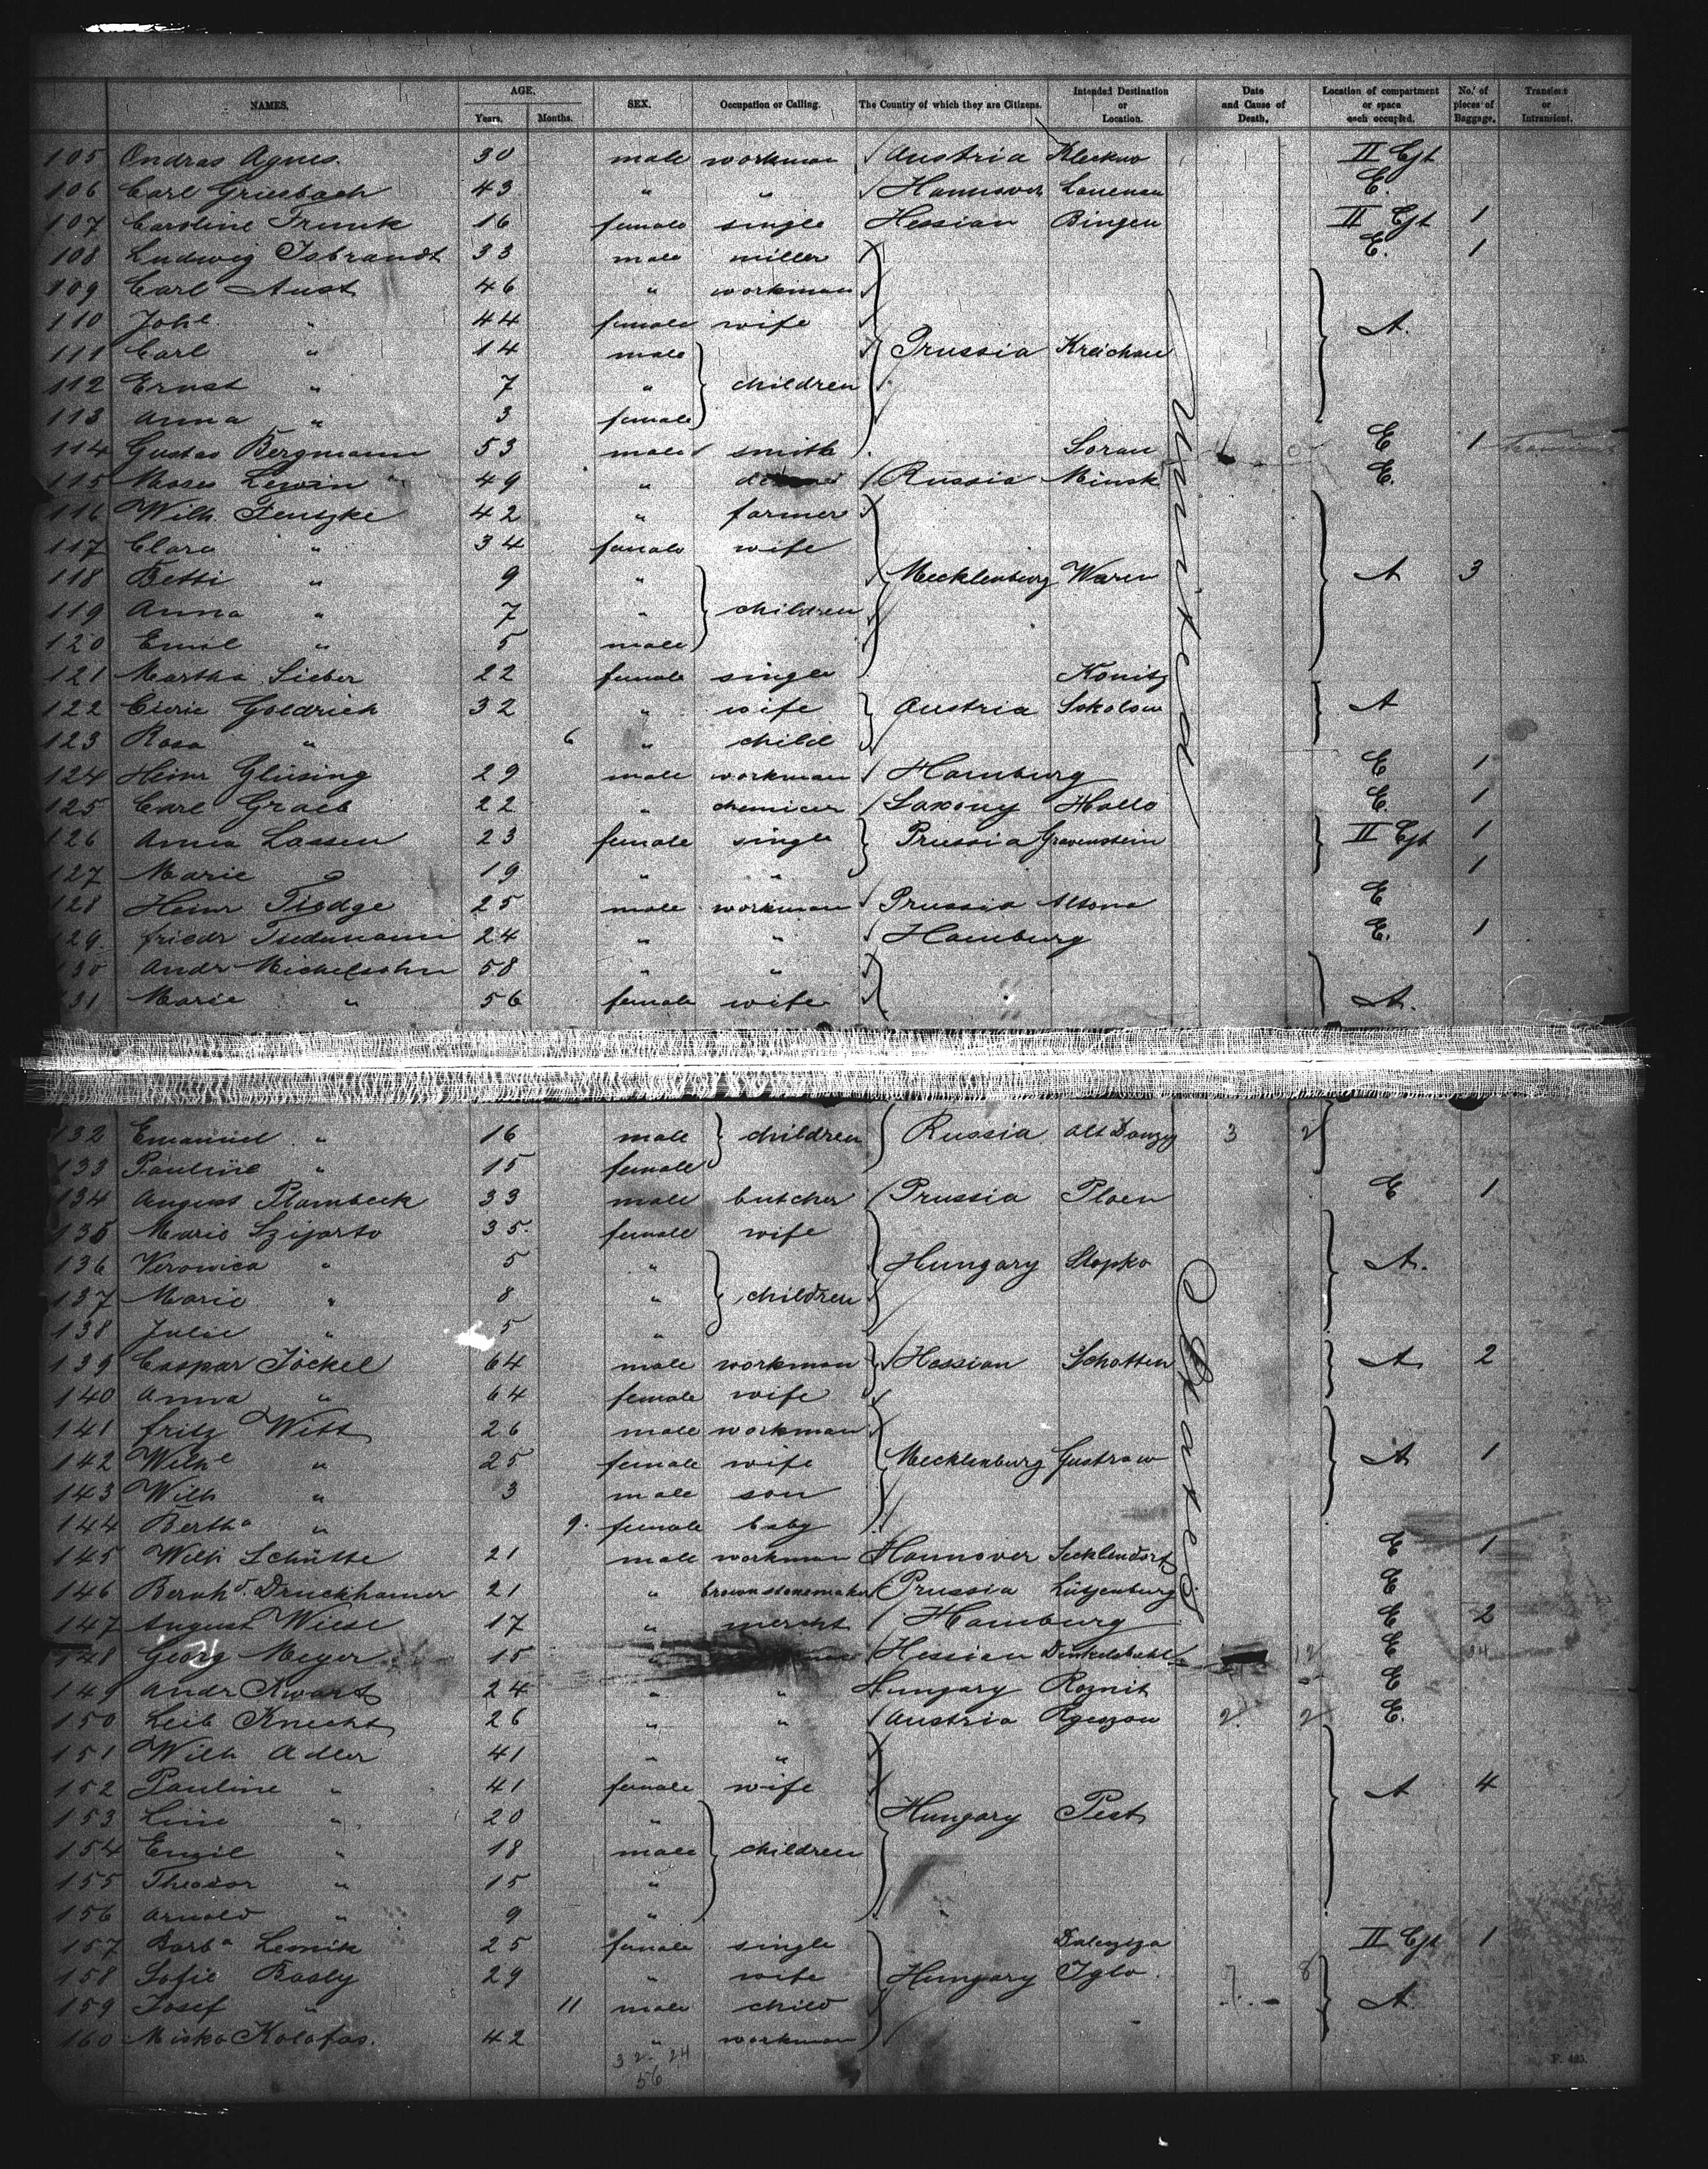 NAMES. AGE. Years. Months. SEX. Occupation or Calling. The Country of which they are Citizens. Intended Destination or Location. Date and Cause of Death. Location of compartment or space each occupied. No. of pieces of Baggage. Transient or Intransient.
105 Ondras Agnes. 30 male workman Austria Kleckno II Cjt
106 Carl Griesbach 43 " " Hannover Lauenau E.
107 Caroline Frunk 16 female single Hessian Bingen II Cjt 1
108 Ludwig Isbrandt 33 male miller E. 1
109 Carl Aust 46 " workman
110 Johe " 44 female wife A.
111 Carl " 14 male Prussia Kreichau
112 Ernst " 7 " children
113 Anna " 3 female
114 Gustav Bergmann 53 male smith Sorau E 1
115 Moses Lewin 49 " Russia Minsk E.
116 Wilh. Fenszke 42 " farmer
117 Clara " 34 female wife
118 Betti " 9 " Mecklenburg Waren A 3
119 Anna " 7 " children
120 Emil " 5 male
121 Martha Sieber 22 female single Konitz
122 Goldrich 32 " wife Austria Sokolow A
123 Rosa " 6 " child
124 Heinr Glüsing 29 male workman Hamburg E 1
125 Carl Graeb 22 " chemicer Saxony Halle E. 1
126 Anna Lassen 23 female single Prussia Gravenstein II Cjt 1
127 Marie " 19 " " 1
128 Heinr Tiedge 25 male workman Prussia Altona E
129. Friedr Tiedemann 24 " " Hamburg E. 1
130 Andr Michelsohn 58 " "
131 Marie " 56 female wife A.
United
132 Emanuel " 16 male children Russia Alt Danzig 3 2
133 Pauline " 15 female
134 August Plambeck 33 male butcher Prussia Ploen E 1
135 Marie Szijarto 35. female wife
136 Veronica " 5 " Hungary Stopko A.
137 Marie " 8 " children
138 Julie " 5 "
139 Caspar Jöckel 64 male workman Hessian Schotten A 2
140 Anna " 64 female wife
141 Fritz Witt 26 male workman
142 Wilhe " 25 female wife Mecklenburg Gustrow A 1
143 Wilh " 3 male son
144 Bertha " 9. female baby
145 Wilh Schütte 21 male workman Hannover Secklendorf E 1
146 Bernhd. Druckhamer 21 " brownstonemaker Prussia Lutjenburg E
147 August Wiese 17 " mercht Hamburg E 2
148 Georg Meyer 15 " Hessian Dinkelsbuhl E
149 Andr Kwart 24 " " Hungary Roznit E
150 Leib Knecht 26 " " Austria Rzeszow 2. 2 E.
151 Wilh Adler 41 " "
152 Pauline " 41 female wife A 4
153 Line " 20 " Hungary Pest
154 Emil " 18 male children
155 Theodor " 15 "
156 Arnold " 9 "
157 Barba Lemik 25 female single II Cjt 1
158 Sofie Basly 29 " wife Hungary Iglo. 7 8
159 Josef " 11 male child A
160 Misko Kolofas. 42 " workman
States
32 24
56
F. 425.